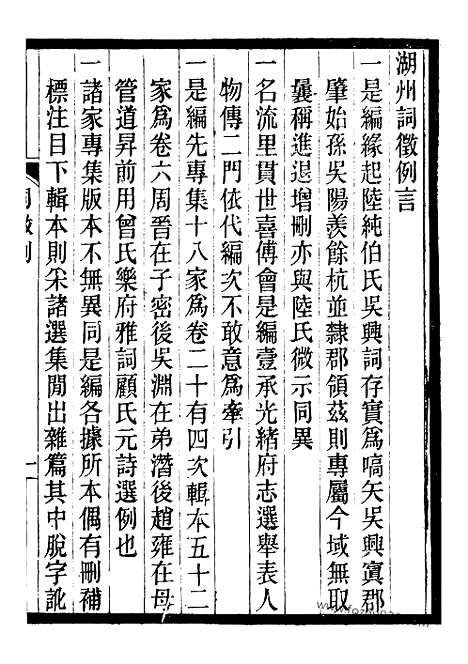 湖州詞徵例言
一是編緣起陸純伯氏吳興詞存實爲嚆矢吳興寘郡
肇始孫吳陽羨餘杭並隸郡領茲則專屬今域無取
曩稱進退增刪亦與陸氏微示同異
一名流里貫世喜傅會是編壹承光緒府志選舉表人
物傳二門依代編次不敢意爲牽引
一是編先專集十八家爲卷二十有四次輯本五十二
家爲卷六周晉在子密後吳淵在弟潛後趙雍在母
管道昇前用曾氏樂府雅詞顧氏元詩選例也
一諸家專集版本不無異同是編各據所本偶有刪補
標注目下輯本則采諸選集閒出雜篇其中脫字訛